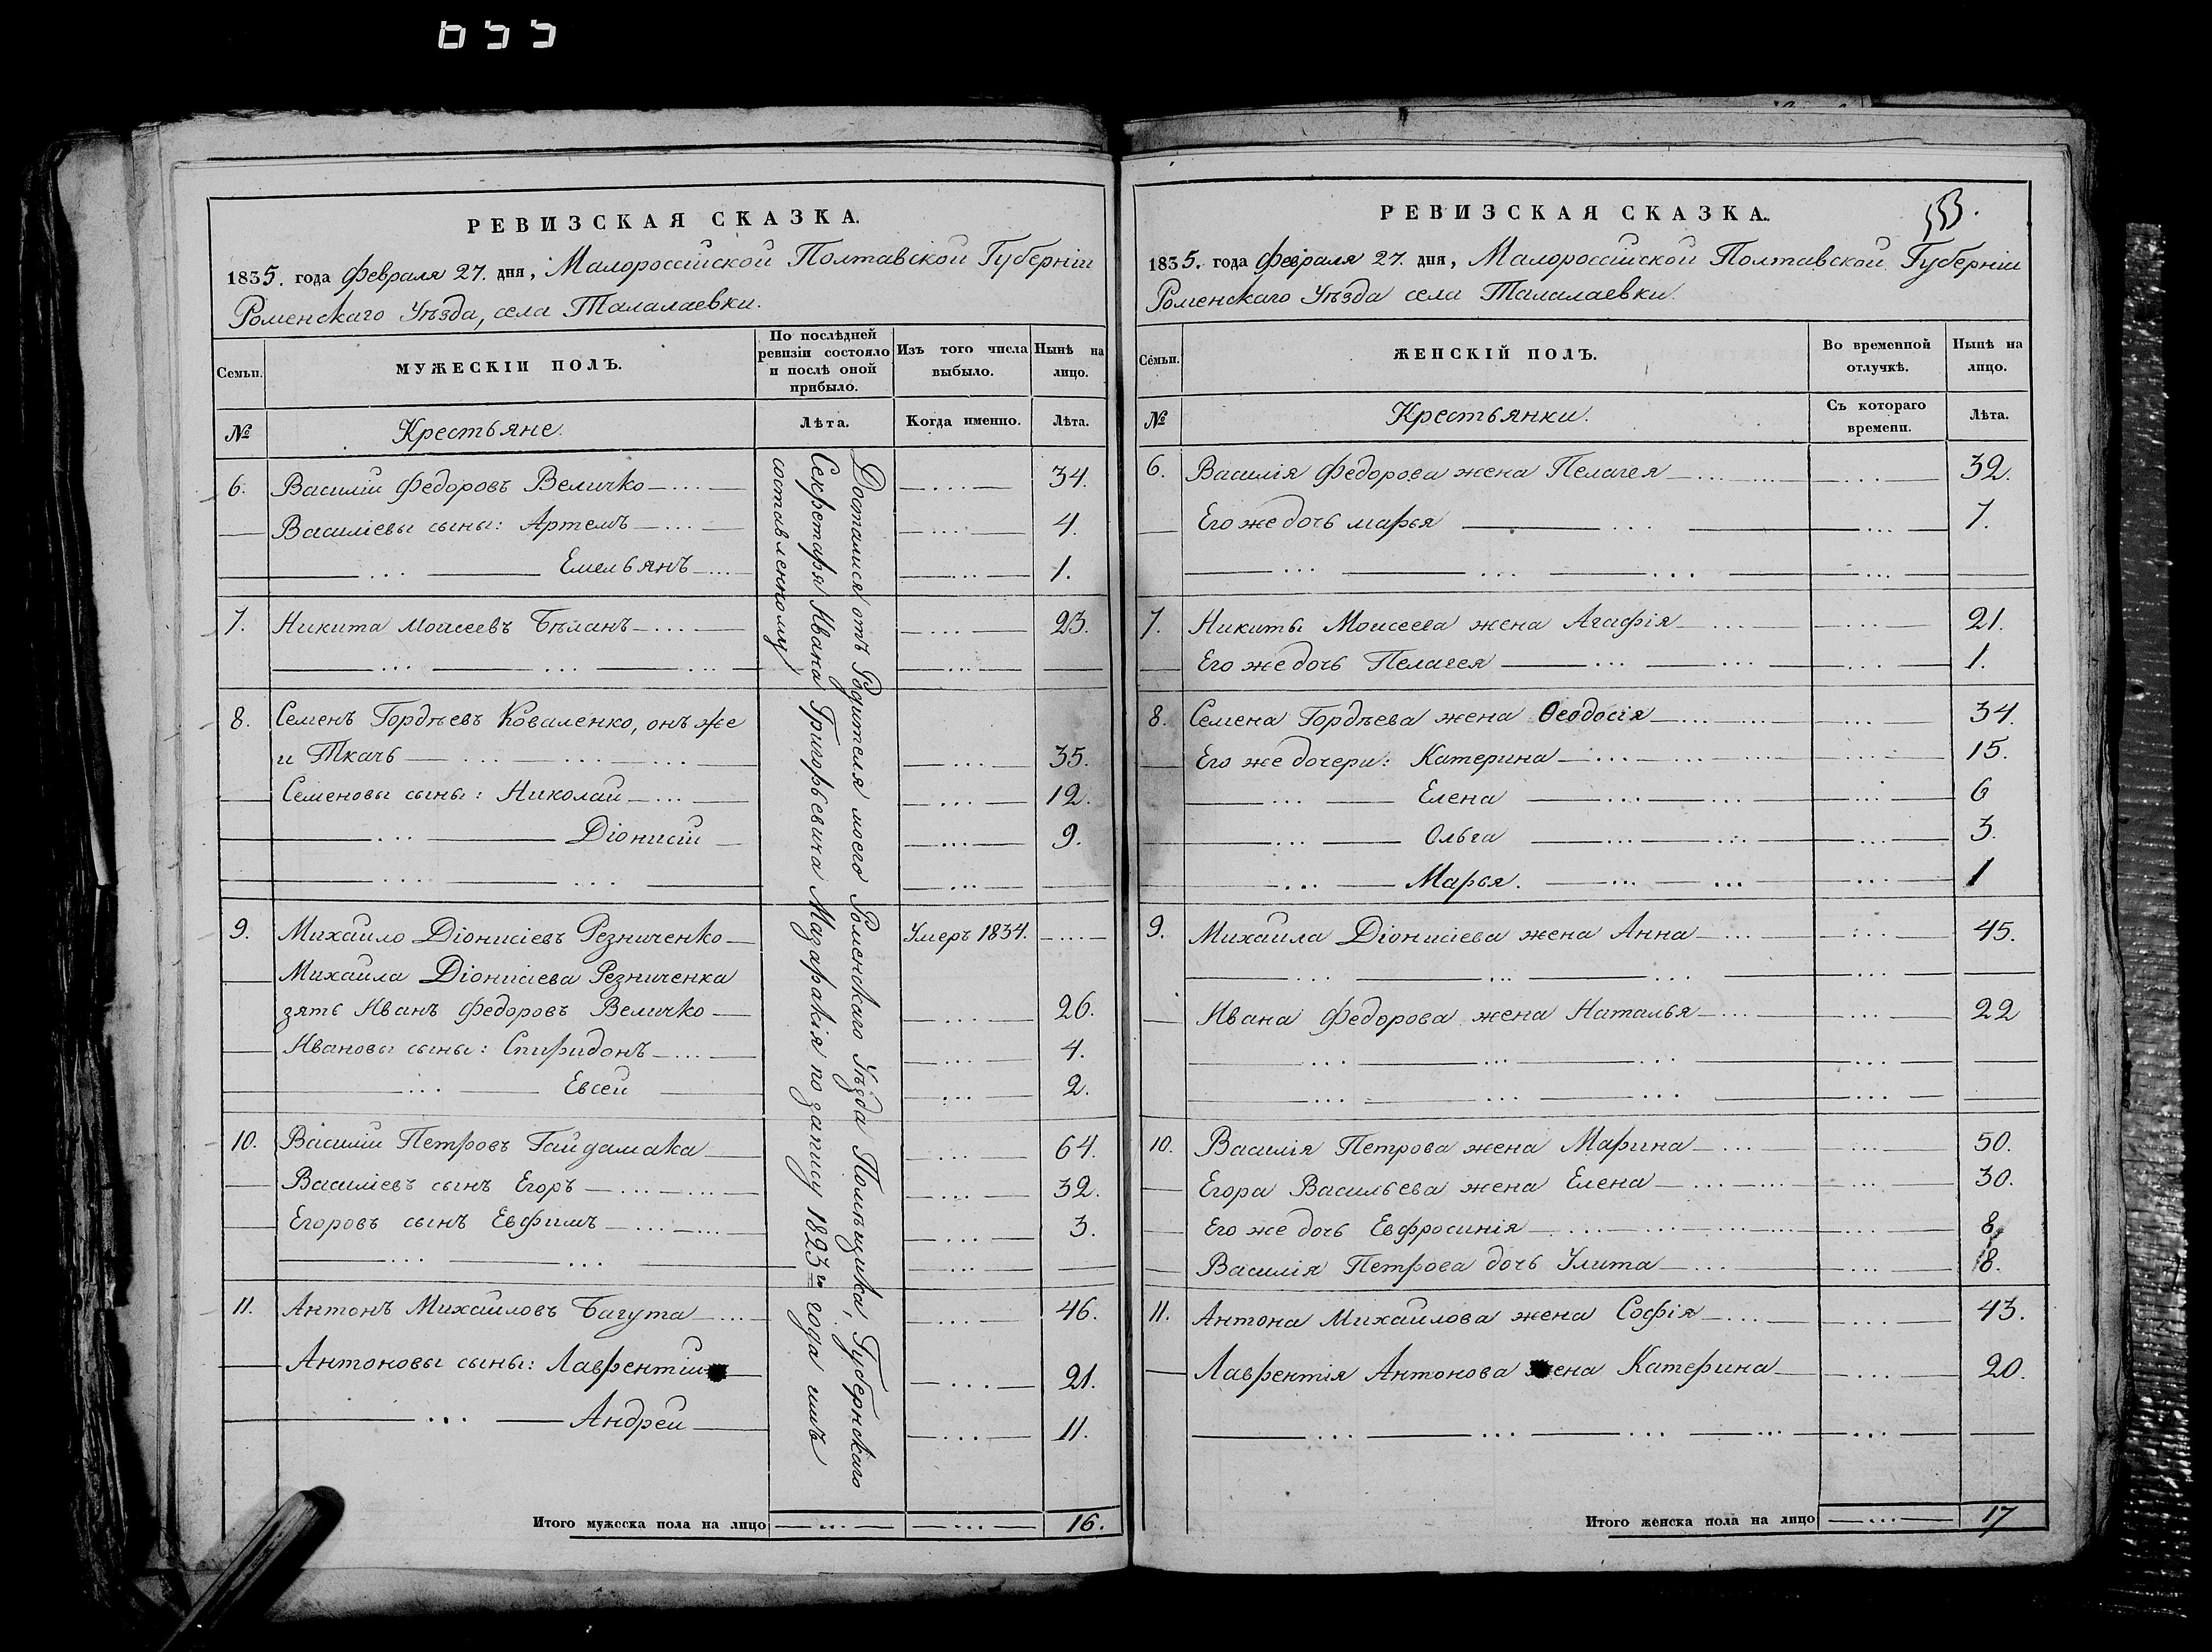 655
РЕВИЗСКАЯ СКАЗКА.
1835. года Февраля 27. дня, Малороссійской Полтавской Губерніи
Роменскаго Уѣзда, села Талалаевки.
Семьи.
МУЖЕСКІИ ПОЛЪ.
По послѣдней ревизіи состояло и послѣ оной прибыло.
Изъ того числа выбыло.
Нынѣ на лицо.
№
Крестьяне.
Лѣта.
Когда именно.
Лѣта.
6. Василій Федоровъ Величко 34.
Василіевы сыны: Артемъ 4.
Емельянъ 1.
7. Никита Моисеевъ Бѣланъ 23.
8. Семенъ Гордѣевъ Коваленко, онъ же
и Ткачь 35.
Семеновы сыны: Николай 12.
Діонисій 9.
9. Михайло Діонисіевъ Резниченко Умеръ 1834.
Михайла Діонисіева Резниченка
зять Иванъ Федоровъ Величко 26.
Ивановы сыны: Спиридонъ 4.
Евсей 2.
10. Василій Петровъ Гайдамака 64.
Василіевъ сынъ Егоръ 32.
Егоровъ сынъ Евфимъ 3.
11. Антонъ Михайловъ Багута 46.
Антоновы сыны: Лаврентій 21.
Андрей 11.
Досталися отъ Родителя моего Роменскаго Уѣзда Помѣщика, Губернскаго
Секретаря Ивана Григорьевича Мазаракія по запису 1823го года имъ
составленному
Итого мужеска пола на лицо 16.
РЕВИЗСКАЯ СКАЗКА.
553.
1835. года Февраля 27. дня, Малороссійской Полтавской Губерніи
Роменскаго Уѣзда села Талалаевки.
Семьи.
ЖЕНСКІЙ ПОЛЪ.
Во временной отлучкѣ.
Нынѣ на лицо.
№
Крестьянки.
Съ котораго времени.
Лѣта.
6. Василія Федорова жена Пелагея 32.
Его же дочь марья 7.
7. Никиты Моисеева жена Агафія 21.
Его же дочь Пелагея 1.
8. Семена Гордѣева жена Ѳеодосія 34.
Его же дочери: Катерина 15.
Елена 6
Ольга 3.
Марья. 1
9. Михайла Діонисіева жена Анна 45.
Ивана Федорова жена Наталья 22
10. Василія Петрова жена Марина 50.
Егора Васильева жена Елена 30.
Его же дочь Евфросинія 8.
Василія Петрова дочь Улита 8.
11. Антона Михайлова жена Софія 43.
Лаврентія Антонова жена Катерина 20.
Итого женска пола на лицо 17